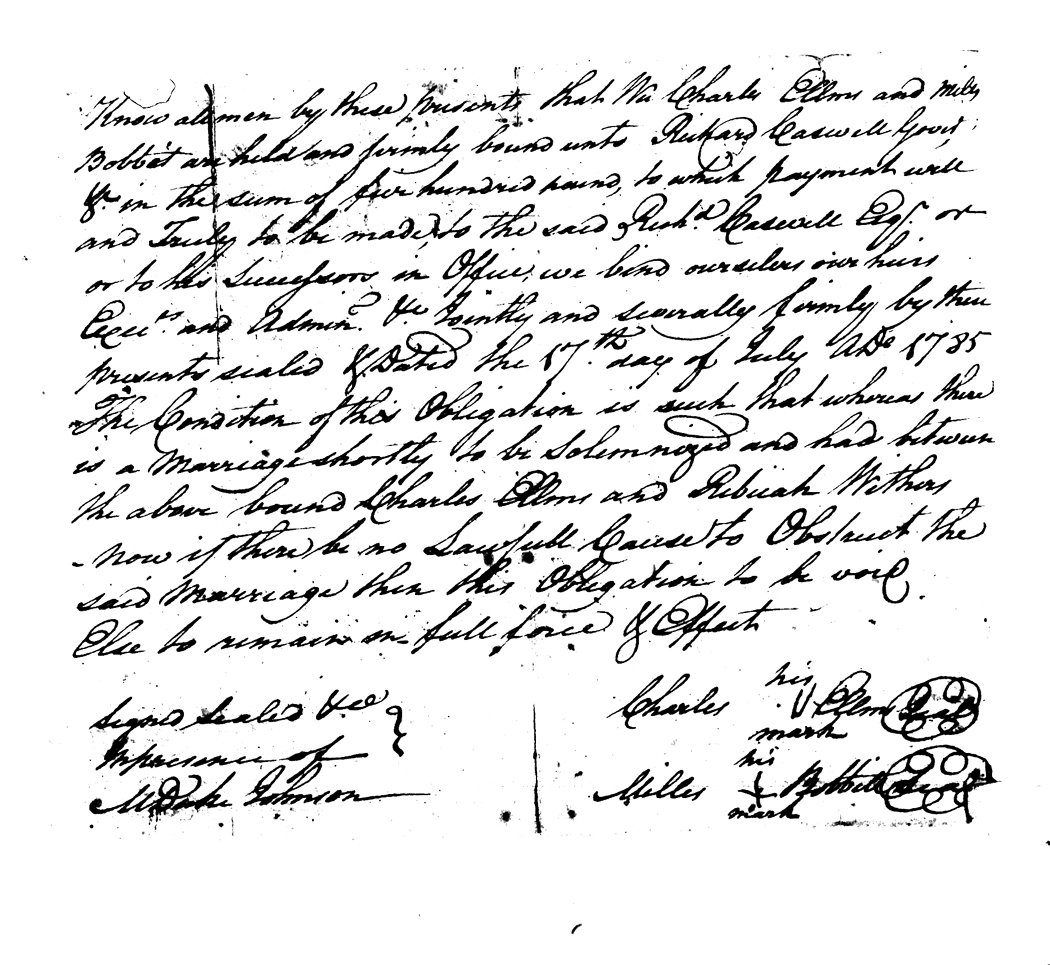 Know all men by these presents that We Charles Ellms and Miles
Bobbit are held and firmly bound unto Richard Caswell Govr,
&c in the sum of five hundred pound, to which payment well
and Truly to be made, to the said Richd. Caswell Esqr. or
or to his Successors in Office, we bind ourselves our heirs
Execrs. and Admin. &c Jointly and severally firmly by these
presents sealed & Dated the 17th day of July ADo 1785
The Condition of this Obligation is such that whereas there
is a Marriage shortly to be Solemnized and had between
the above bound Charles Ellms and Rebicah Withers
now if there be no Lawfull Cause to Obstruct the
said Marriage then this Obligation to be void
Else to remain in full force & Effect
Signed Sealed &c
In presence of
M Duke Johnson
Charles his mark Ellms Seal
Milles his mark Bobbitt Seal